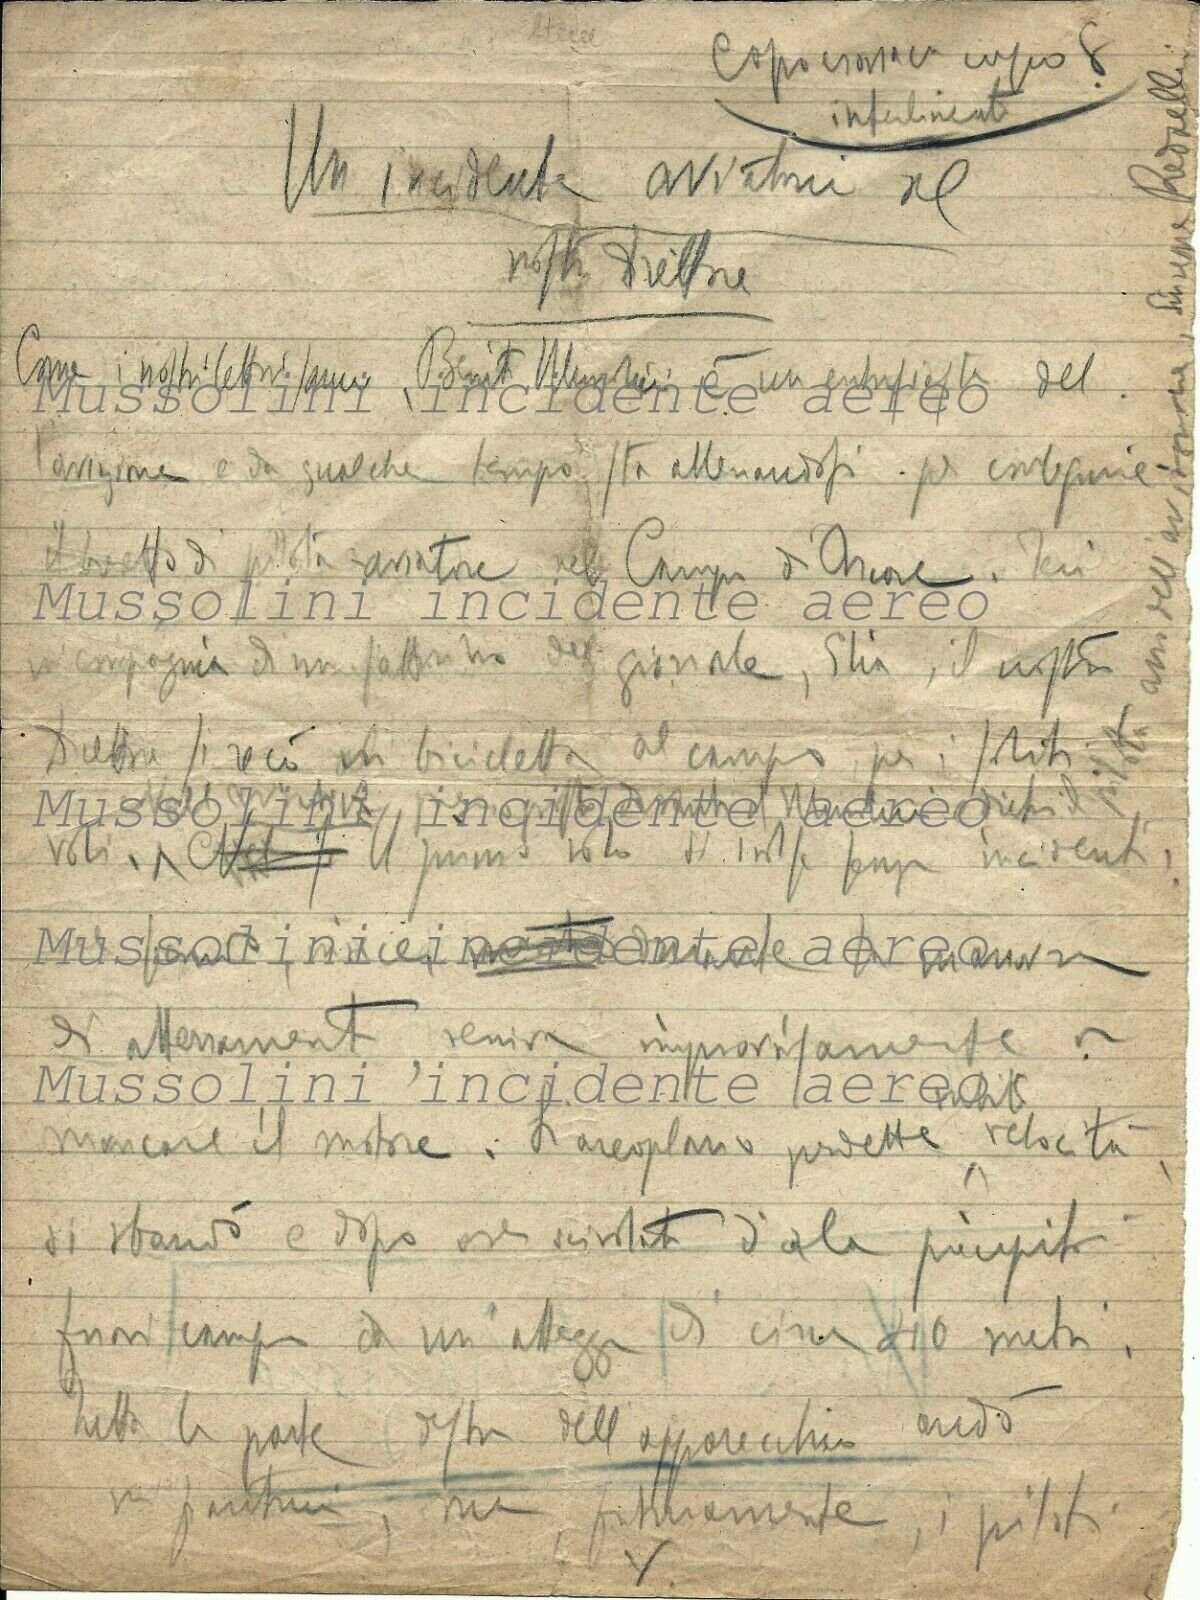 Capocronaca corpo 8
interlineato
Un incidente aviatorio del
nostro Direttore
Come i nostri lettori sanno, Benito Mussolini è un entusiasta del
Mussolini incidente aereo
l'aviazione e da qualche tempo sta allenandosi per conseguire
il brevetto di pilota aviatore nel Campo d'Arcore. Ieri
Mussolini incidente aereo
in compagnia di un fattorino del giornale, Elia, il nostro
Direttore si recò in bicicletta al campo, per i soliti
Mussolini incidente aereo
voli. Il primo volo si svolse senza incidenti;
Mussolini incidente aereo
durante la manovra
di atterramento veniva improvvisamente a
Mussolini incidente aereo
subito
mancare il motore. L'areoplano perdette velocità,
si sbandò e dopo una scivolata d'ala precipitò
fuori campo da un'altezza di circa metri.
Tutta la parte destra dell'apparecchio andò
in frantumi, ma, fortunatamente, i piloti
pilota assi dell'aviazione, Giuseppe Redaelli